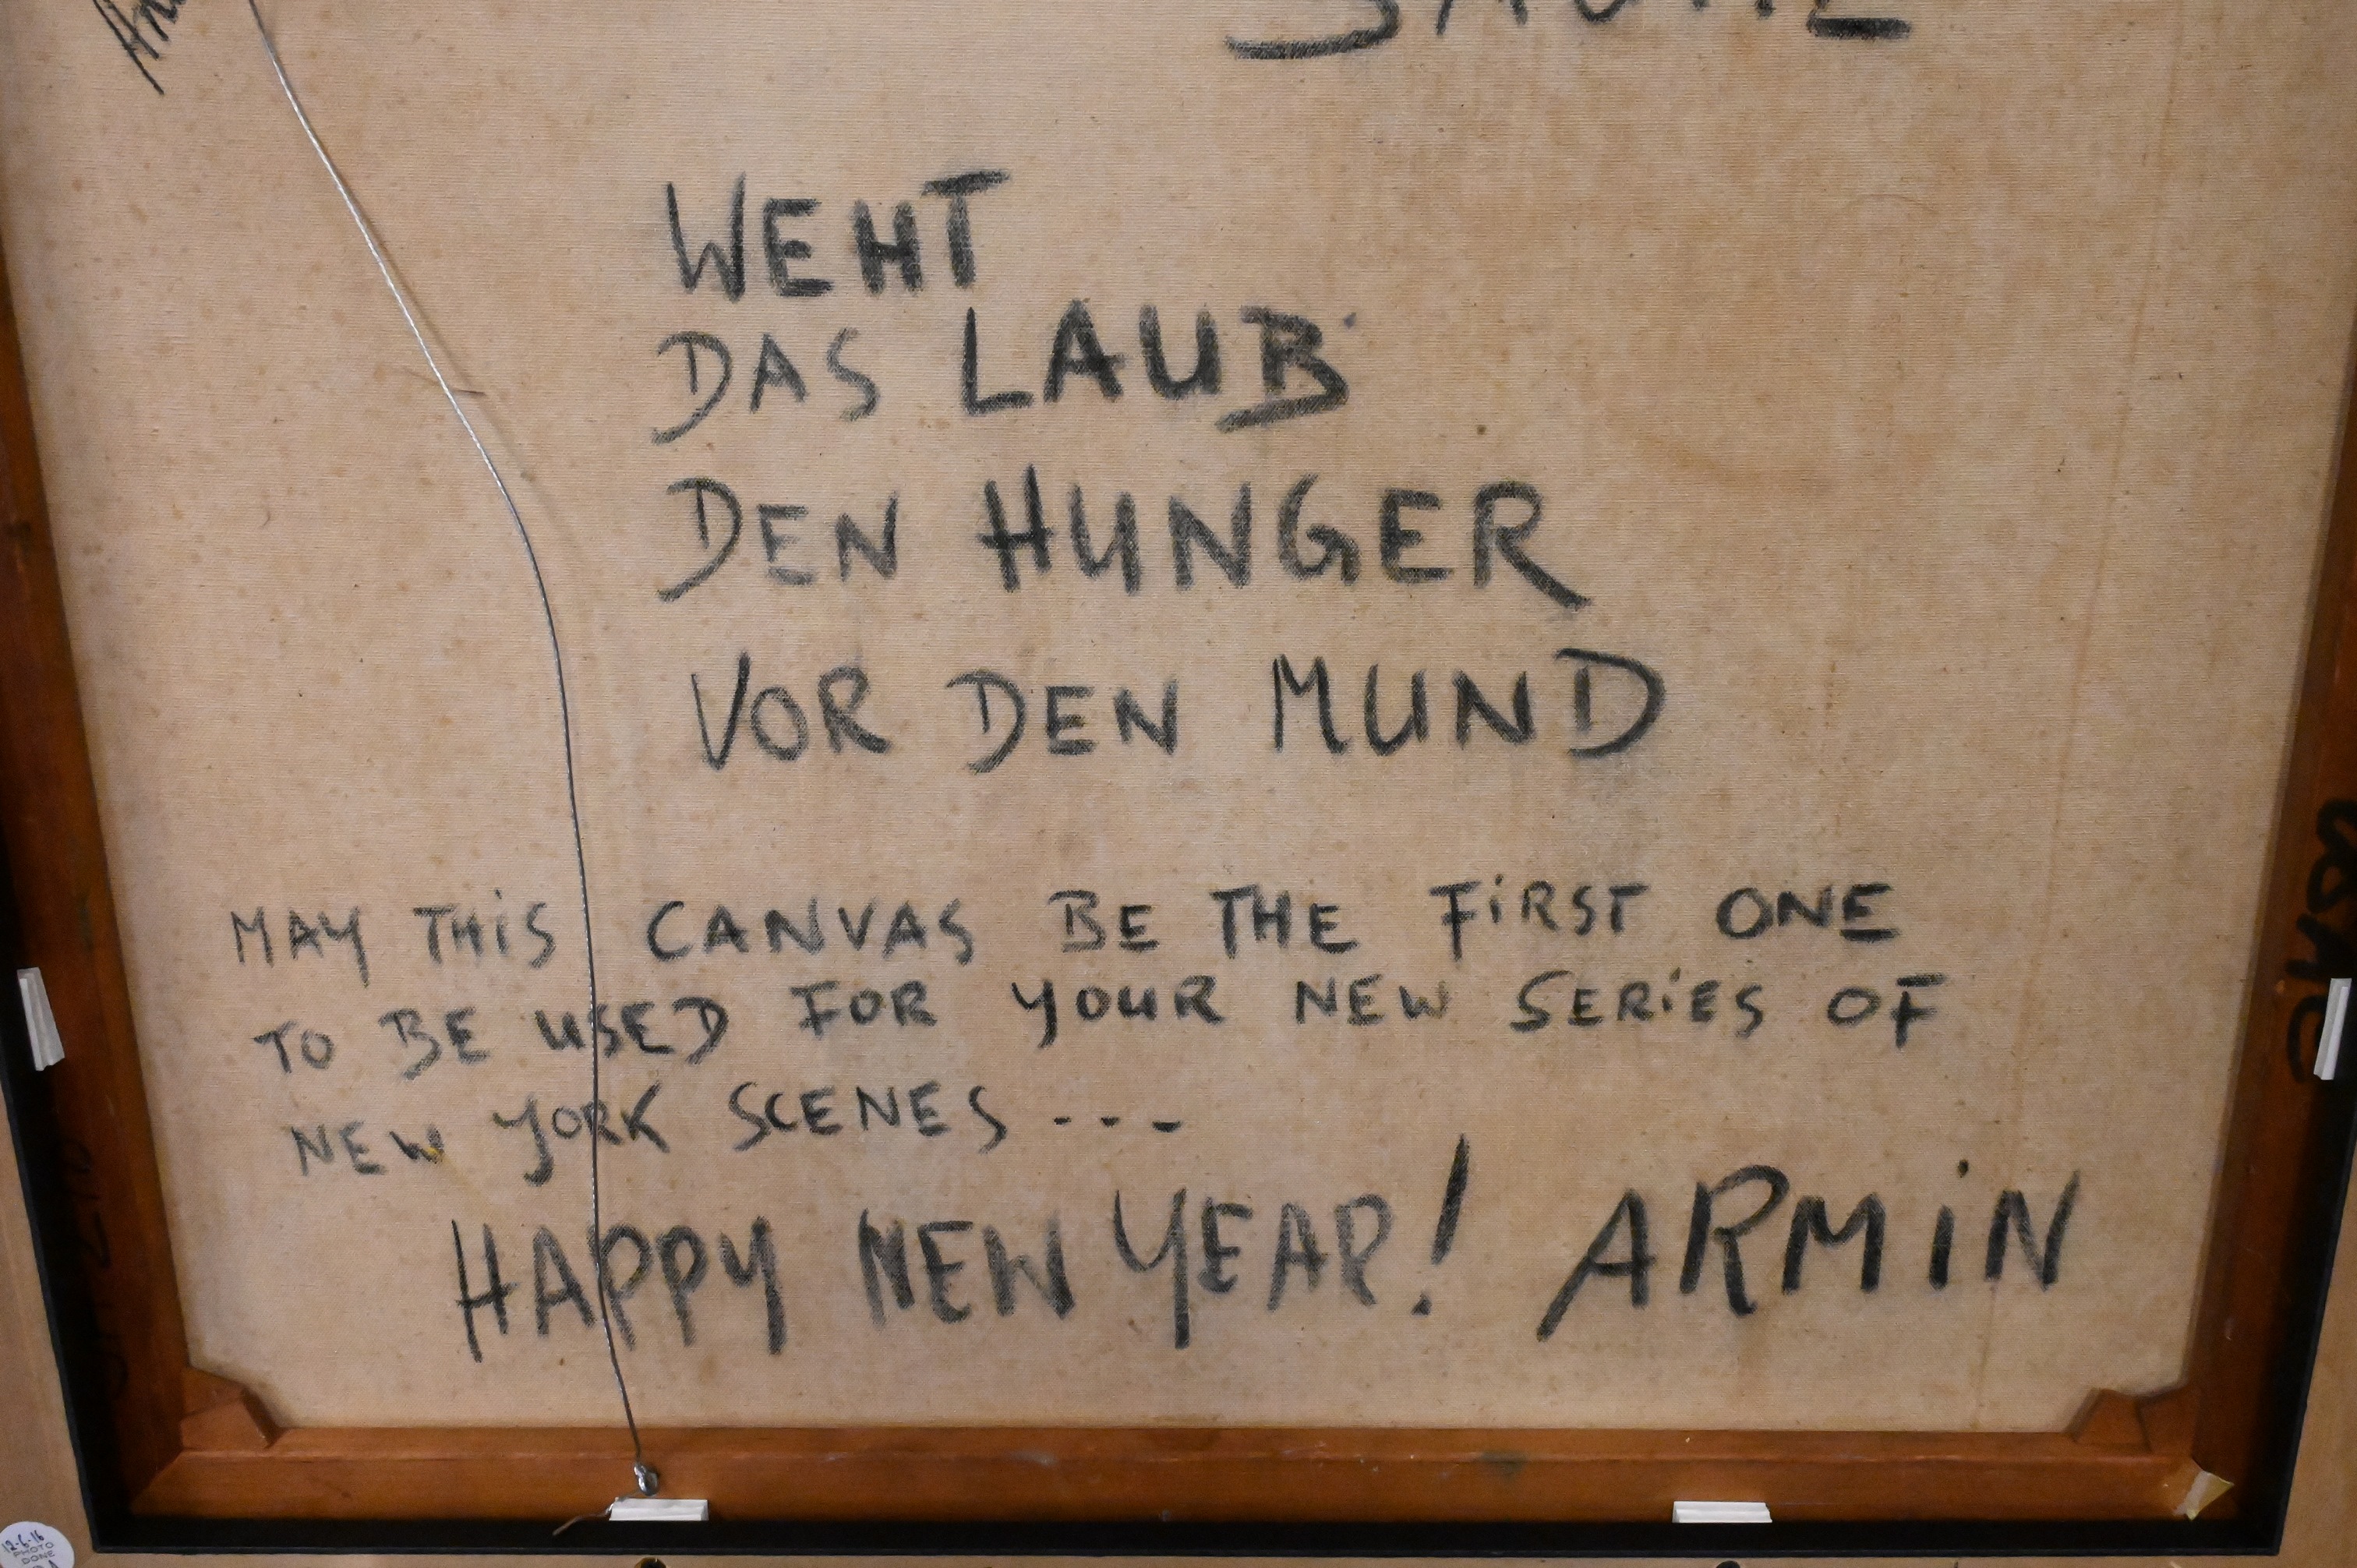 WEHT
DAS LAUB
DEN HUNGER
VOR DEN MUND
MAY THiS CANVAS BE THE FiRST ONE
TO BE USED FOR YOUR NEW SERiES OF
NEW YORK SCENES ---
HAPPY NEW YEAR! ARMiN
12-6-16
PHOTO
DONE